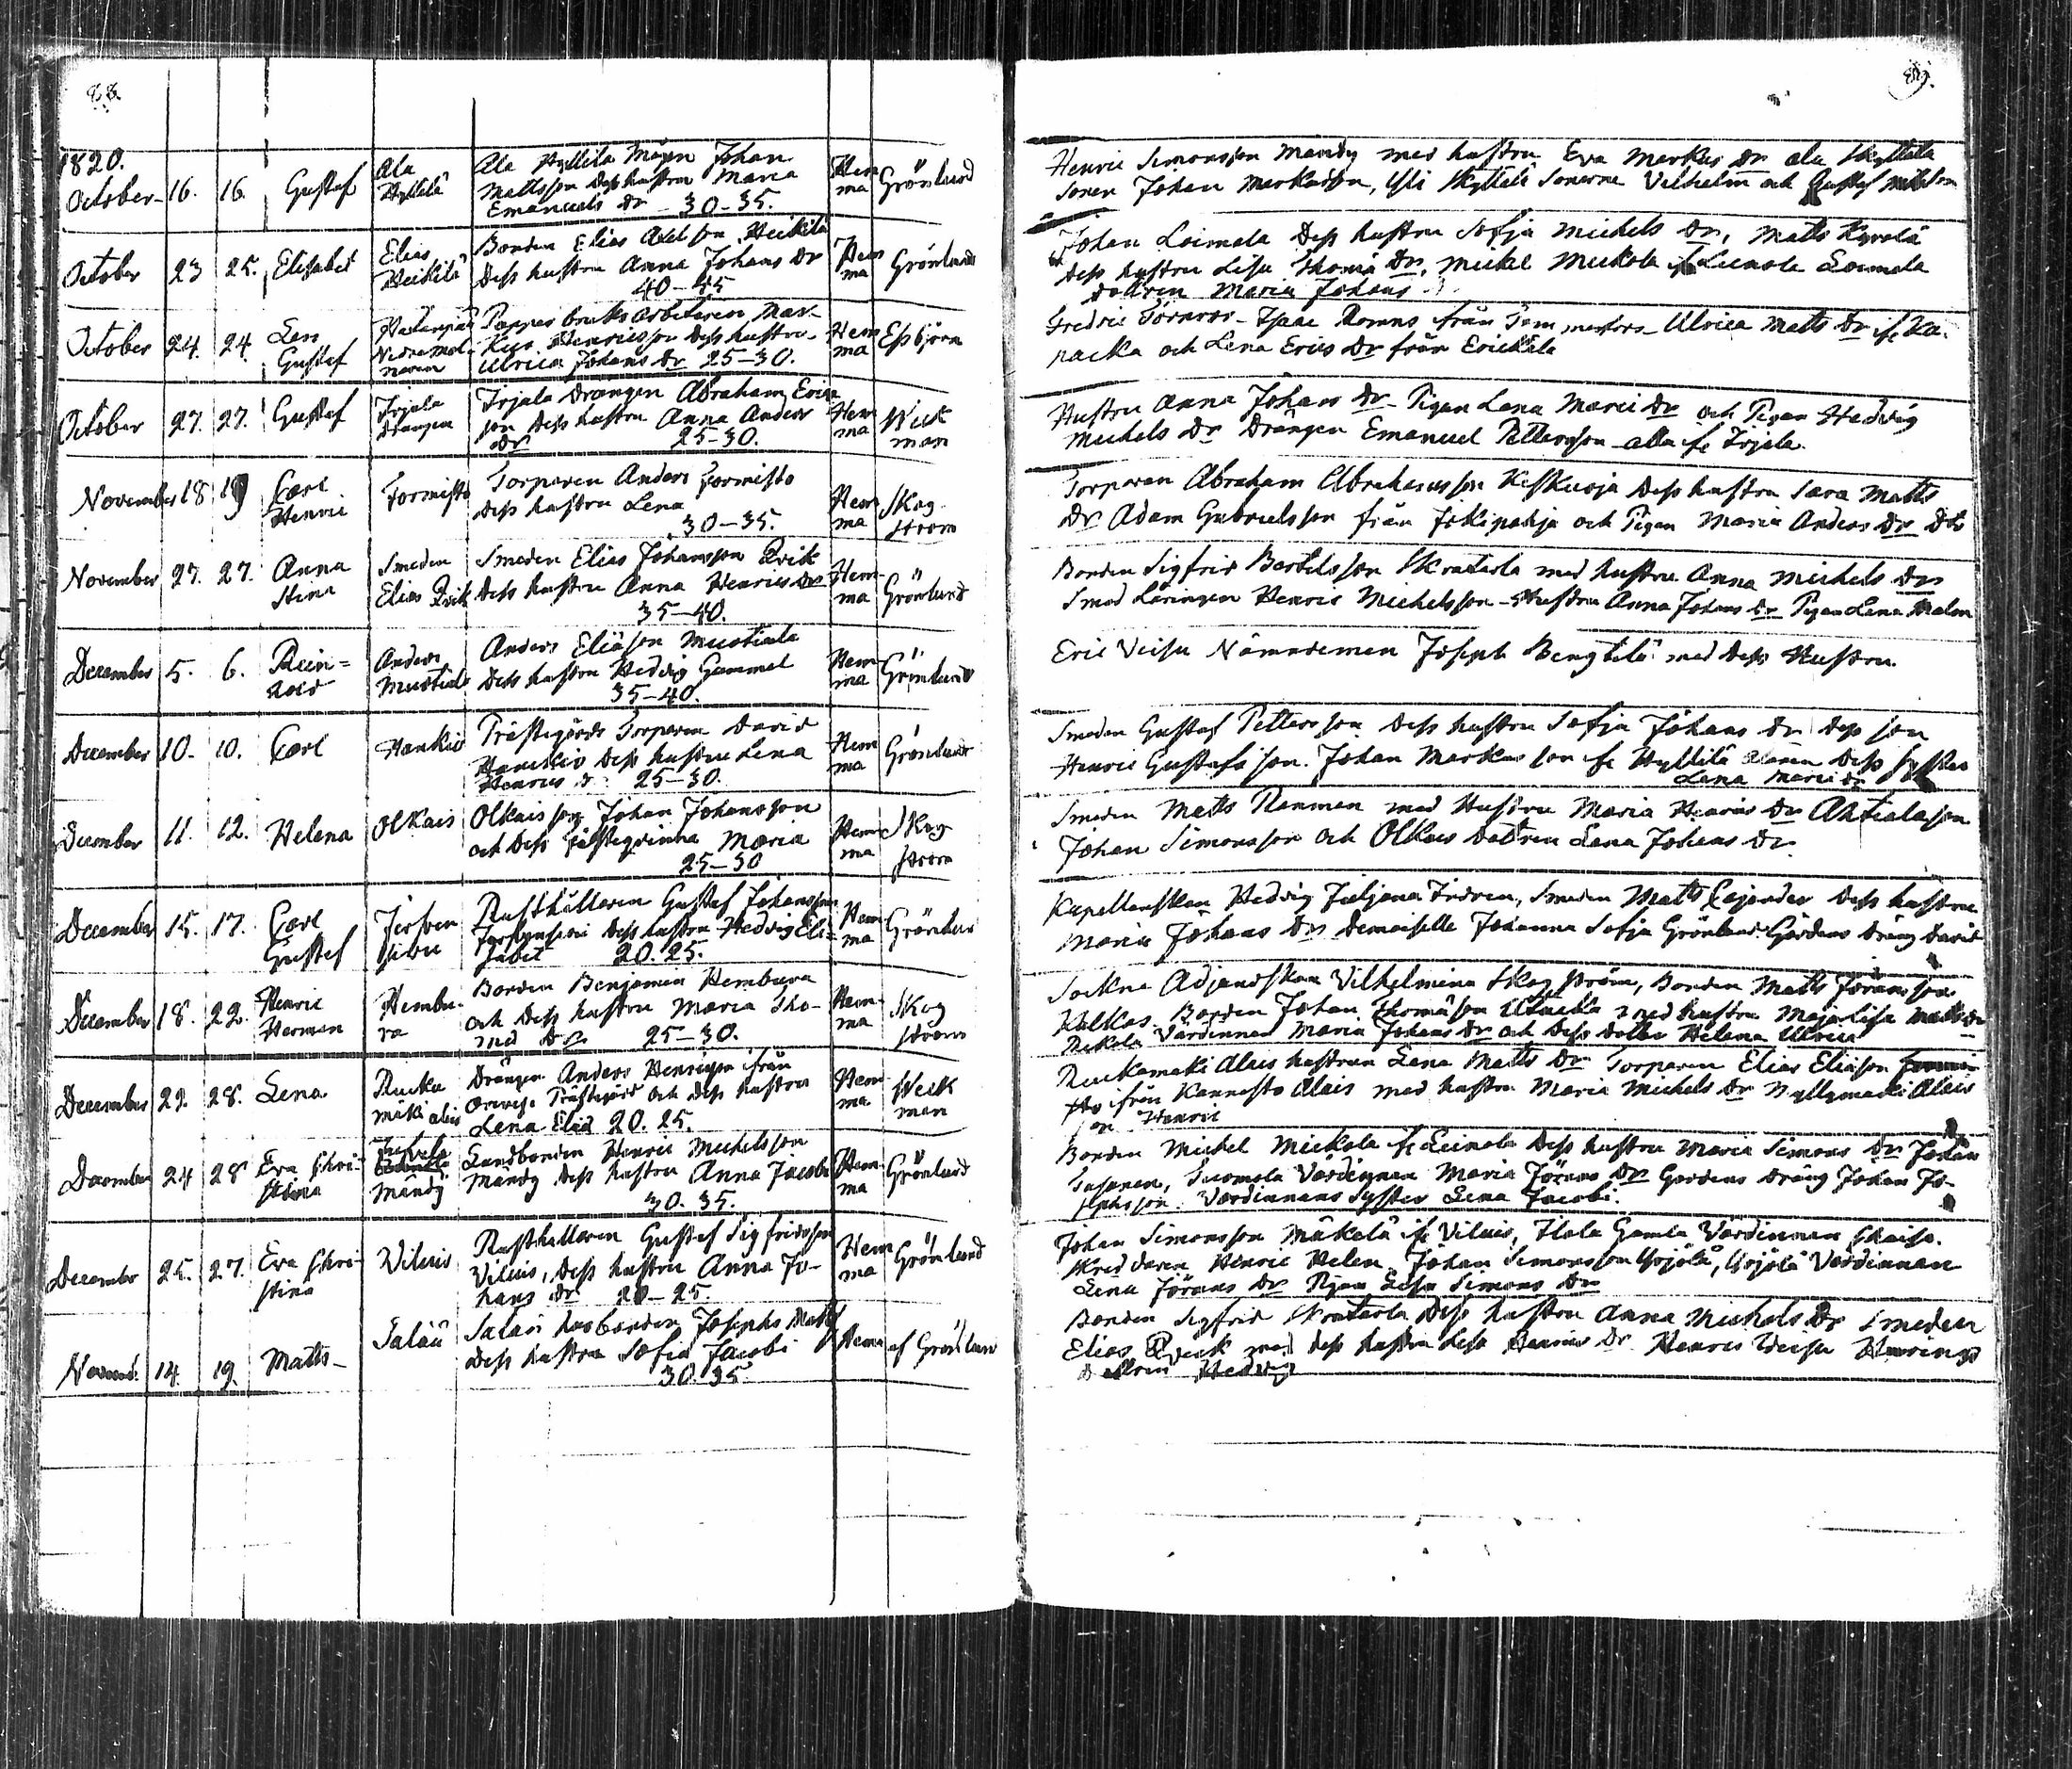 88.
1820.
October 16. 16. Gustaf
Ala
Hyltilä
Ala Hyltila Mågen Johan
Mattsson dess hustru Maria
Emanuels Dr 30-35.
Hem
ma
Grönlund
October 23 25. Elisabet
Elias
Heikilä
Bonden Elias Axelsson Heikilä
Dess hustru Anna Johans Dr
40-45
Hem
ma
Grönlund
October 24. 24.
Gustaf
Papper bruks Arbetaren Mar-
kus Henricsson dess hustru
Ulrica Johans Dr 25-30.
Hem
ma
Essbjörn
October 27. 27. Gustaf
Irjala
Drängen
Irjala Drängen Abraham Erics
son dess hustru Anna Anders
Dr 25-30.
Hem
ma
Weck
man
November 18 19
Carl
Henric
Formisto
Torparen Anders Formisto
dess hustru Lena
30-35.
Hem
ma
Skog
ström
November 27. 27.
Anna
Stina
Smeden
Elias Qvik
Smeden Elias Johansson Qvik
Dess hustru Anna Henrics Dr
35-40.
Hem
ma
Grönlund
December 5. 6.
Rein=
hold
Anders
Mustiala
Anders Eliäson Mustiala
Dess hustru Hedvig Gammal
35-40.
Hem
ma
Grönlund
December 10. 10. Carl
Hankio
Prästegårds Torparen David
Hankio dess hustru Lena
Henrics dr 25-30.
Hem
ma
Grönlund
December 11. 12. Helena
Olkais
Olkais son Johan Johansson
och dess fästeqvinna Maria
25-30
Hem
ma
Skog
ström
December 15. 17.
Carl
Gustaf
Rusthållaren Gustaf Johansson
dess hustru Hedvig Eli-
sabet 20.25.
Hem
ma
Grönlund
December 18. 22.
Henric
Herman
Hembu-
ra
Bonden Benjamin Hembura
och dess hustru Maria Tho-
med Dr 25-30.
Hem
ma
Skog
ström
December 22. 28. Lena
Rucka
maki Alais
Drängen Anders Henricsson från
Prästegård och dess hustru
Lena Eliä 20.25.
Hem
ma
Weck
man
December 24 28
Eva Chri-
stina
Mändy
Landbonden Henric Michelsson
Mändy dess hustru Anna Jacobs
30.35.
Hem
ma
Grönlund
December 25. 27.
Eva Chri-
stina
Viluis
Rusthållaren Gustaf Sigfridsson
Viluis, dess hustru Anna Jo-
hans Dr 20-25.
Hem
ma
Grönlund
Novemb. 14. 19. Matts
Salaü
Salaü husbonden Josephs Matts
dess hustru Sofia Jacobi
30.35
Hema
af Grönlund
89.
Henric Simonsson Mändy med hustru Eva Markus Dr Ala Skyttälä
Sonen Johan Markusson, Yli Skyttälä Sönerna Vilhelm och Gustaf
Johan Loimala dess hustru Sofja Michels Dr, Matts Kyrolä
dess hustru Lisa Thomä Dr, Michel Mickola if Leinola Loimala
dottren Maria Johans
Fredric Törnroos - Isaac Romns från Tammerfors - Ulrica Matts Dr if Ka-
packa och Lena Erics Dr från Erickälä
Hustru Anna Johans Dr Pigan Lena Marci Dr och Pigan Hedvig
Michels Dr Drängen Emanuel Pettersson alla if Irjala.
Torparen Abraham Abrahamsson Keskuoja dess hustru Sara Matts
Dr Adam Gabrielsson från Jokipohja och Pigan Maria Anders Dr
Bonden Sigfrid Bertelsson Skratarla med hustru Anna Michels Dr
Smed Läringen Henric Michelsson - Hustru Anna Johans Dr Pigan Lena Malm
Eric Veisu Nämndeman Joseph Bengtilä med dess Hustru
Smeden Gustaf Pettersson dess hustru Sofja Johans Dr dess son
Henric Gustafsson. Johan Markusson if Hyltilä dess syster
Lena Marci Dr
Smeden Matts Renman med Hustru Maria Henrics Dr Antialason
Johan Simonsson och Olkais Dottren Lena Johans Dr
Kapellanskan Hedvig Juljana Indren, Smeden Matts Cajander dess hustru
Maria Johans Dr Demoiselle Johanna Sofja Grönlund Gårdens Dräng David
Sockne Adjunctskan Vilhelmina Skogström, Bonden Matts Göransson
Kulkas Bonden Johan Thomäson med hustru Maja Lisa Matts Dr
Mickola Värdinnan Maria Johans Dr och dess dotter Helena Ulrica
Ruckamaki Alais hustrun Lena Matts Dr Torparen Elias Eliäson
från Kannosto Alais med hustru Maria Michels Dr Myllymaki Alais
son Henric
Bonden Michel Mickola if Leinola dess hustru Maria Simons Dr Johan
Suomola Värdinnan Maria Jörans Dr Gårdens Dräng Johan Jo-
sephsson Värdinnans syster Lena Jacobi.
Johan Simonsson Mäkelä if Viluis, Ilola Gamla Värdinnan
Skreddaren Henric Helen, Johan Simonsson Yrjölä, Yrjölä Värdinnan
Lena Jörans Dr Pigan Lisa Simons Dr
Bonden Sigfrid Skratarla dess hustru Anna Michels Dr Smeden
Elias Qveck med dess hustru Lisa Henrics Dr Henric Veisu
dottren Hedvig